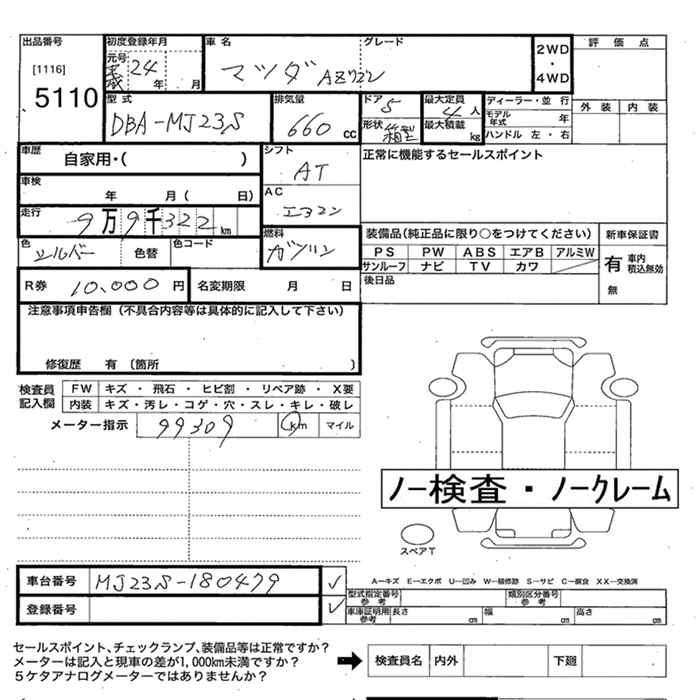 出品番号 初度登録年月 車名 グレード 2WD・4WD 評価点
[1116] 元号 平成 24 年 月 マツダ AZワゴン
5110
型式 排気量 ドア 5 最大定員 4人 ディーラー・並行 外装 内装
DBA-MJ23S 660 cc 形状 箱型 最大積載 kg モデル年式 年
ハンドル 左・右
車歴 自家用・( ) シフト AT 正常に機能するセールスポイント
車検 年 月( 日) AC エアコン
走行 9万9千322 km 燃料 ガソリン 装備品(純正品に限り○をつけてください) 新車保証書
色 シルバー 色替 色コード PS PW ABS エアB アルミW 有 車内 積込無効
サンルーフ ナビ TV カワ
R券 10,000 円 名変期限 月 日 後日品 無
注意事項申告欄(不具合内容等は具体的に記入して下さい)
修復歴 有(箇所 )
検査員記入欄 FW キズ・飛石・ヒビ割・リペア跡・X要
内装 キズ・汚レ・コゲ・穴・スレ・キレ・破レ
メーター指示 99309 km マイル
ノー検査・ノークレーム
スペアT
車台番号 MJ23S-180479 ✓ A―キズ E―エクボ U―凹み W―補修跡 S―サビ C―腐食 XX―交換済
登録番号 ✓ 型式指定番号 参考 類別区分番号 参考
車庫証明用 参考 長さ cm 幅 cm 高さ cm
セールスポイント、チェックランプ、装備品等は正常ですか?
メーターは記入と現車の差が1,000km未満ですか? 検査員名 内外 下廻
5ケタアナログメーターではありませんか?